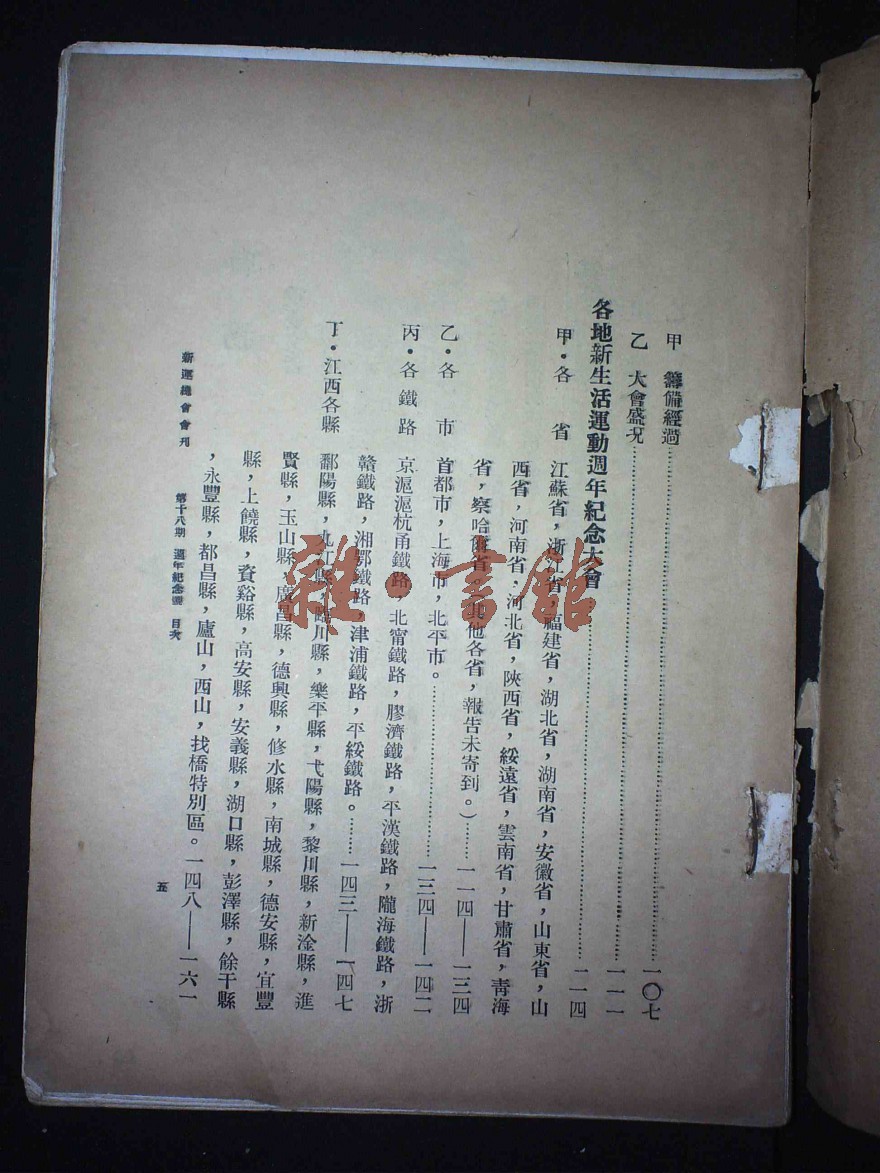 甲 籌備經過……一〇七
乙 大會盛況……一一一
各地新生活運動週年紀念大會……一一四
甲・各省 江蘇省，浙江省，福建省，湖北省，湖南省，安徽省，山東省，山
西省，河南省，河北省，陝西省，綏遠省，雲南省，甘肅省，青海
省，察哈爾省。其他各省，報告未寄到。）……一一四—一三四
乙・各市 首都市，上海市，北平市。……一三四—一四二
丙・各鐵路 京滬滬杭甬鐵路，北甯鐵路，膠濟鐵路，平漢鐵路，隴海鐵路，浙
贛鐵路，湘鄂鐵路，津浦鐵路，平綏鐵路。……一四三—一四七
丁・江西各縣 鄱陽縣，九江縣，臨川縣，樂平縣，弋陽縣，黎川縣，新淦縣，進
賢縣，玉山縣，廣昌縣，德興縣，修水縣，南城縣，德安縣，宜豐
縣，上饒縣，資谿縣，高安縣，安義縣，湖口縣，彭澤縣，餘干縣
，永豐縣，都昌縣，廬山，西山，找橋特別區。一四八—一六一
新運總會會刊 第十八期 週年紀念專 目次
五
雜・書館